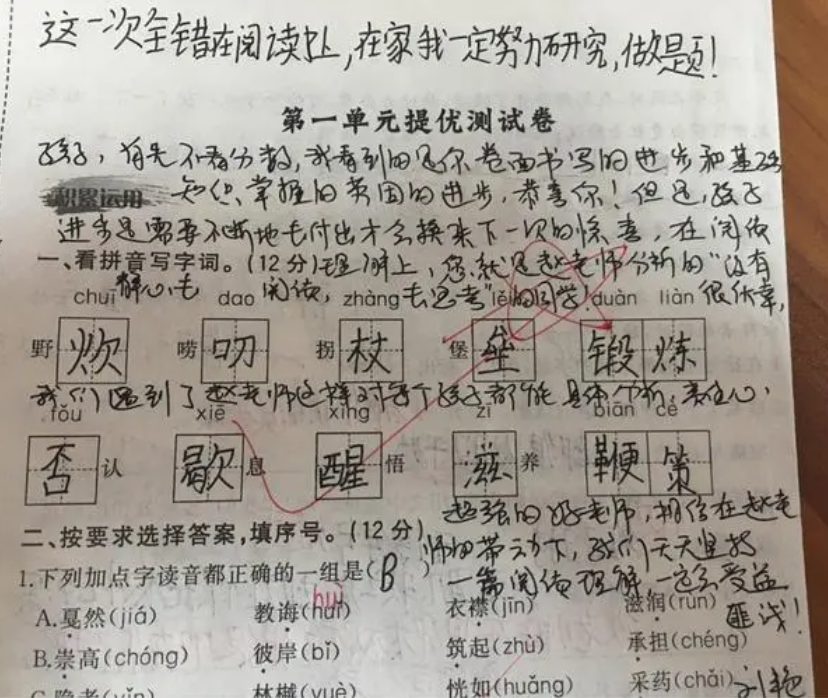 这一次全错在阅读上,在家我一定努力研究,做题!
第一单元提优测试卷
孩子,首先不看分数,我看到的是你卷面书写的进步和基础
积累运用
知识掌握的巩固的进步,恭喜你!但是,孩子
进步是需要不断地去付出才会换来下一次的惊喜,在阅读
一、看拼音写字词。(12分)
理解上,您就是赵老师分析的“没有
静心去阅读,去思考”的同学!很庆幸,
chuī dao zhàng lěi duàn liàn
野炊 唠叨 拐杖 堡垒 锻炼
我们遇到了赵老师这样对每个孩子都能具体分析、责任心
fǒu xiē xǐng zī biān cè
否认 歇息 醒悟 滋养 鞭策
超强的好老师,相信在赵老
二、按要求选择答案,填序号。(12分)
师的带动下,孩们天天坚持
1.下列加点字读音都正确的一组是(B)
一篇阅读理解一定会受益
匪浅!
huì
A.戛然(jiá) 教诲(huǐ) 衣襟(jīn) 滋润(rùn)
B.崇高(chóng) 彼岸(bǐ) 筑起(zhù) 承担(chéng)
C.隐者(yǐn) 林樾(yuè) 恍如(huǎng) 采药(chǎi)
刘艳